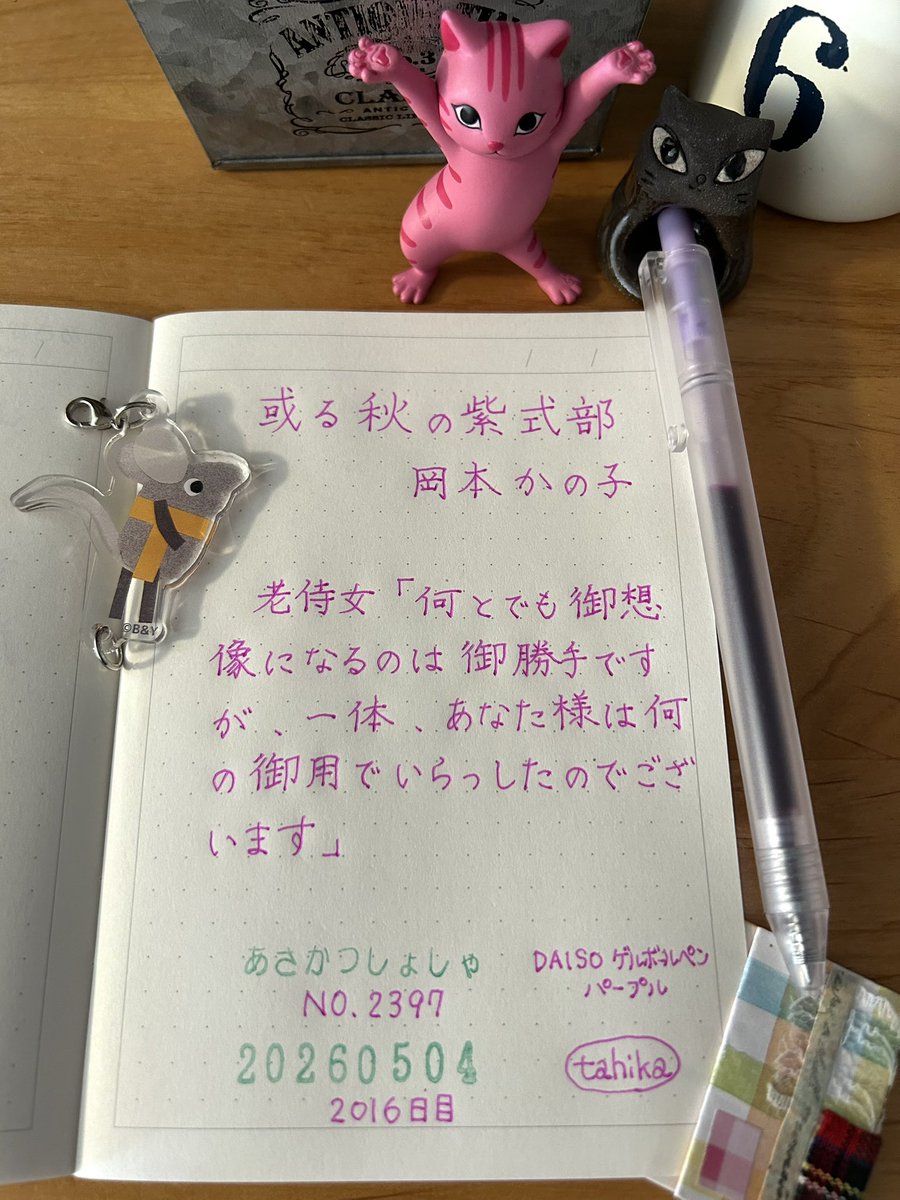 No.3
CLASSIC LI
6
或る秋の紫式部
岡本かの子
老侍女「何とでも御想
像になるのは御勝手です
が、一体、あなた様は何
の御用でいらっしたのでござ
います」
©B&Y
あさかつしょしゃ
NO.2397
20260504
2016日目
DAISO ゲルボールペン
パープル
tahika